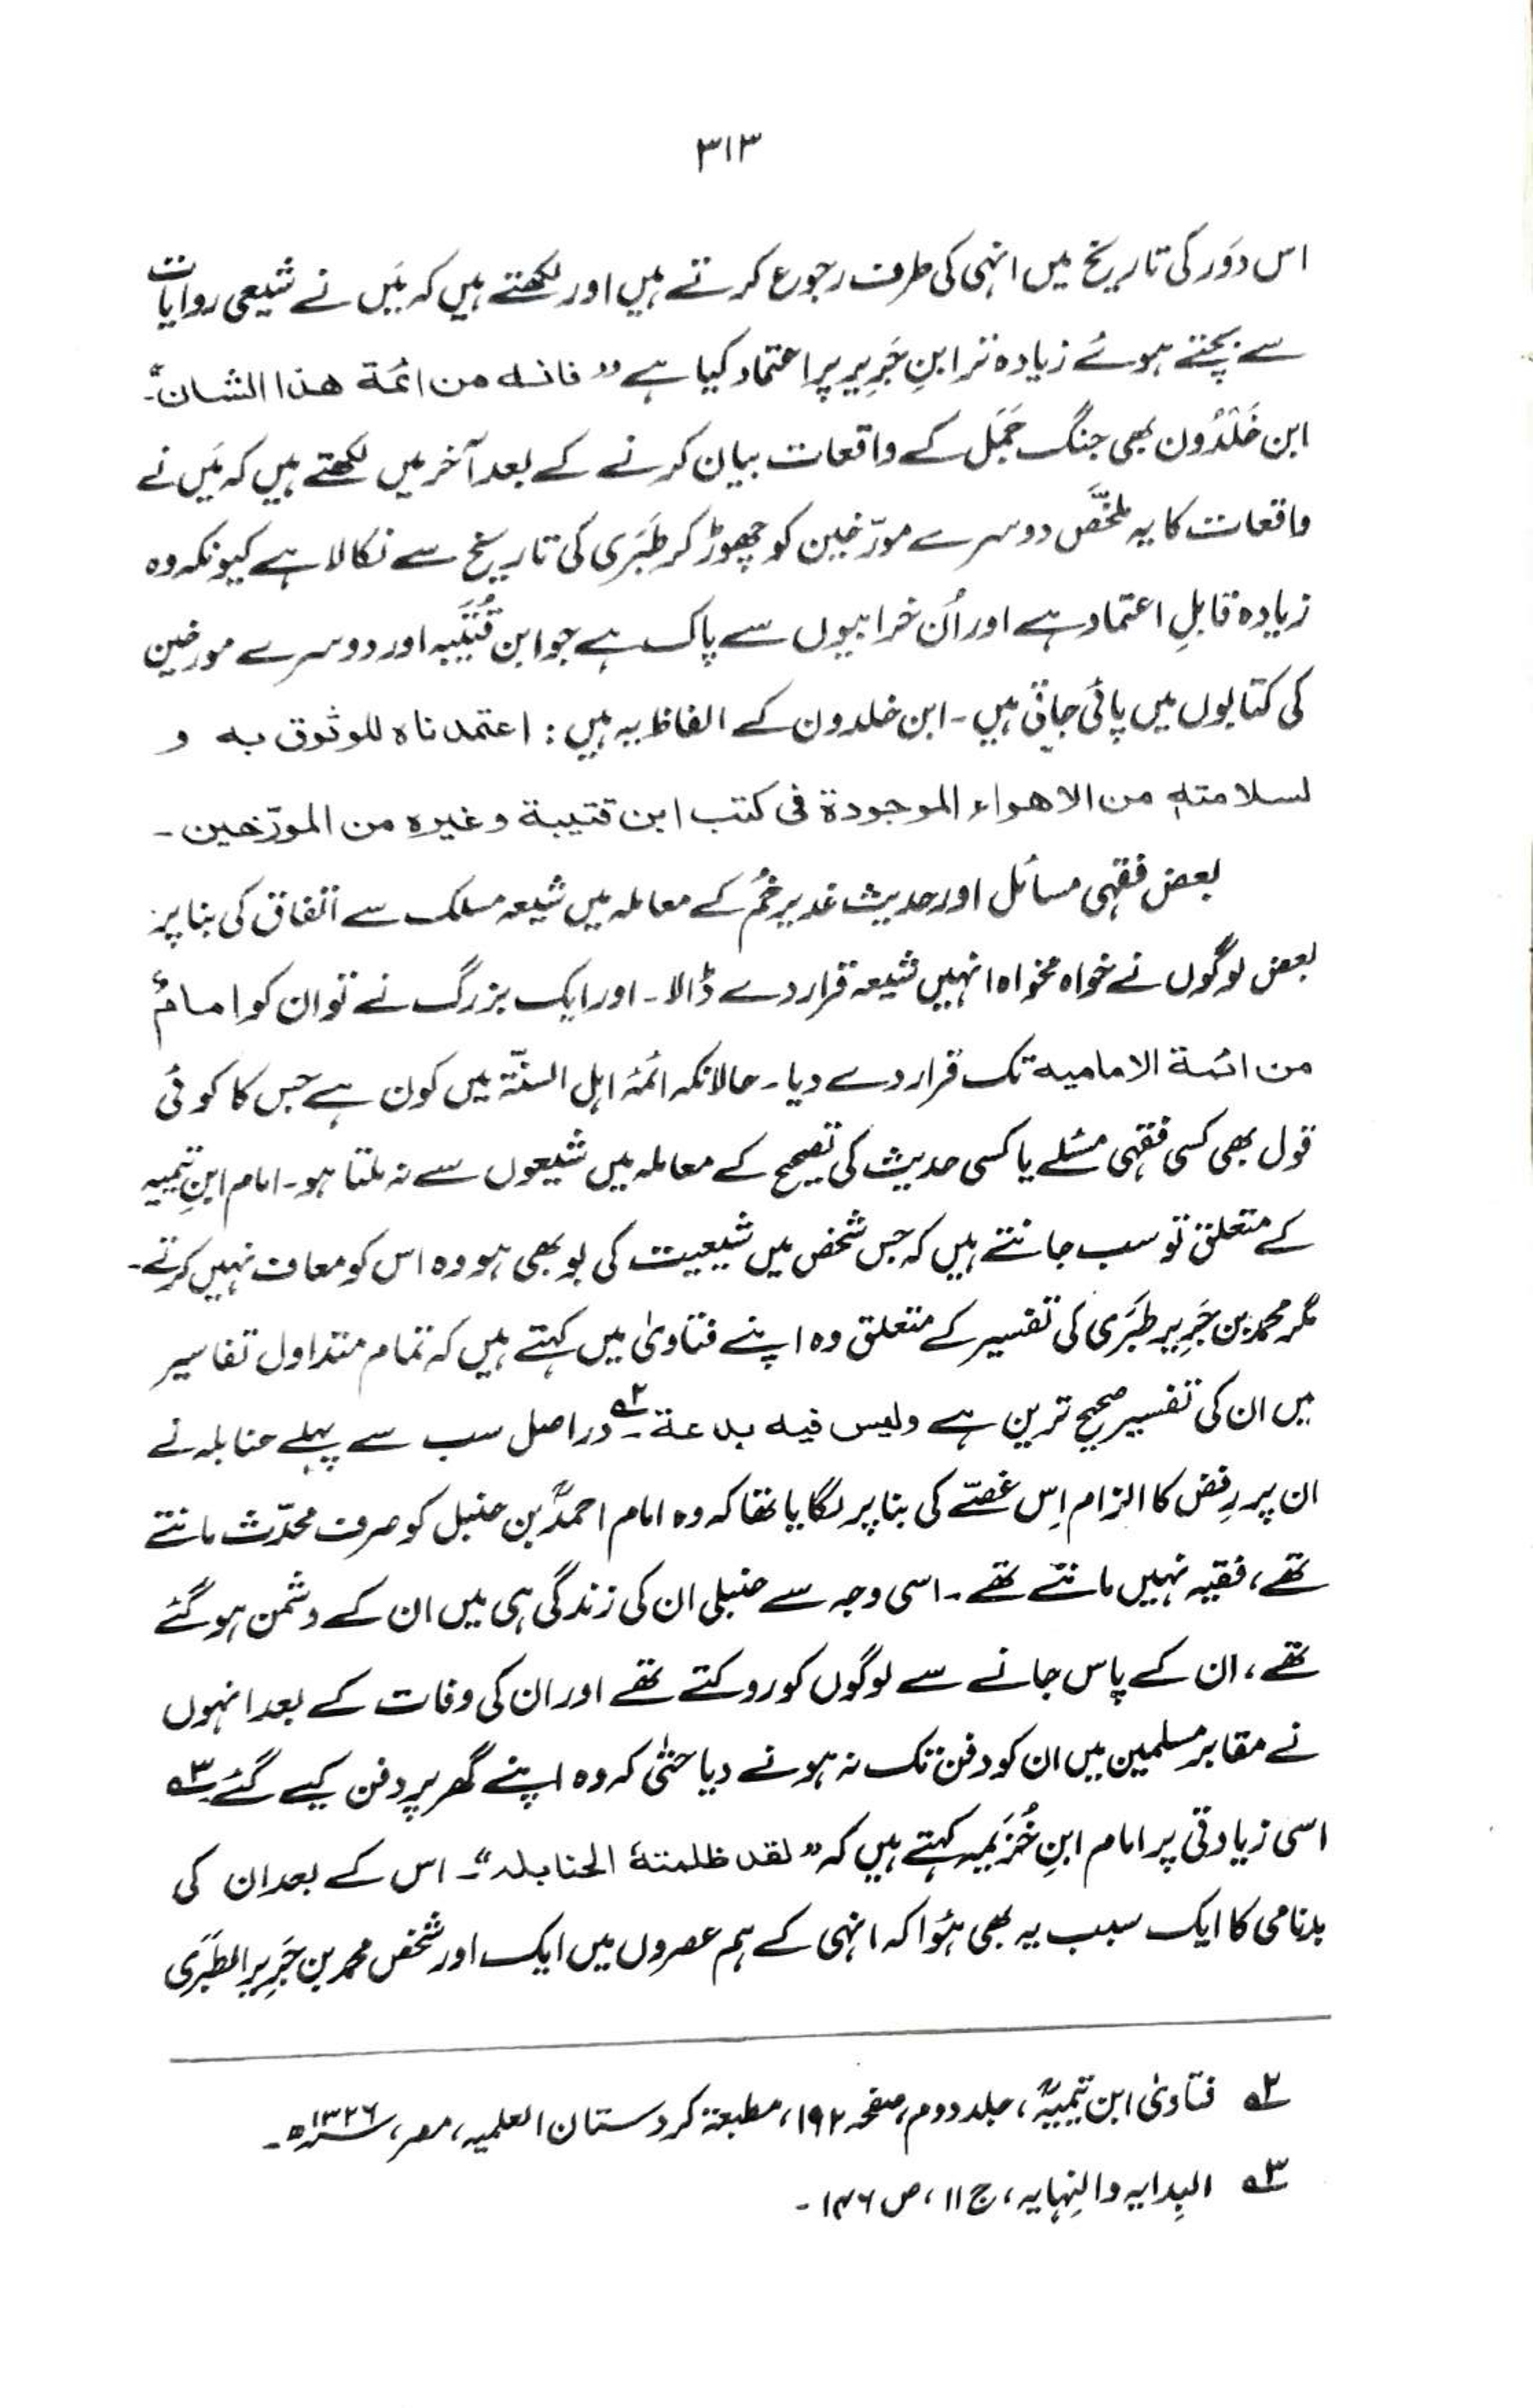 ۳۱۳
اس دَور کی تاریخ میں انہی کی طرف رجوع کرتے ہیں اور لکھتے ہیں کہ مَیں نے شیعی روایات
سے بچتے ہوئے زیادہ تر ابنِ جَرِیر پر اعتماد کیا ہے ”فانہ من ائمۃ ھذا الشان“۔
ابن خَلْدُون بھی جنگ جَمَل کے واقعات بیان کرنے کے بعد آخر میں لکھتے ہیں کہ مَیں نے
واقعات کا یہ ملخَّص دوسرے مورّخین کو چھوڑ کر طَبَری کی تاریخ سے نکالا ہے کیونکہ وہ
زیادہ قابلِ اعتماد ہے اور اُن خرابیوں سے پاک ہے جو ابن قُتَیْبَہ اور دوسرے مورخین
کی کتابوں میں پائی جاتی ہیں۔ ابن خلدون کے الفاظ یہ ہیں: اعتمدناہ للوثوق بہ و
لسلامتہٖ من الاھواء الموجودۃ فی کتب ابن قتیبۃ وغیرہ من المورّخین۔
بعض فقہی مسائل اور حدیث غدیر خُم کے معاملہ میں شیعہ مسلک سے اتفاق کی بنا پر
بعض لوگوں نے خواہ مخواہ انہیں شیعہ قرار دے ڈالا۔ اور ایک بزرگ نے تو ان کو امامٌ
من ائمۃ الامامیہ تک قرار دے دیا۔ حالانکہ ائمۂ اہل السنّۃ میں کون ہے جس کا کوئی
قول بھی کسی فقہی مسئلے یا کسی حدیث کی تصحیح کے معاملہ میں شیعوں سے نہ ملتا ہو۔ امام ابنِ تیمیہ
کے متعلق تو سب جانتے ہیں کہ جس شخص میں شیعیت کی بو بھی ہو وہ اس کو معاف نہیں کرتے۔
مگر محمد بن جَرِیر طَبَری کی تفسیر کے متعلق وہ اپنے فتاویٰ میں کہتے ہیں کہ تمام متداول تفاسیر
میں ان کی تفسیر صحیح ترین ہے ولیس فیہ بدعۃ۔۲؎ دراصل سب سے پہلے حنابلہ نے
ان پر رِفض کا الزام اِس غصّے کی بنا پر لگایا تھا کہ وہ امام احمدؒ بن حنبل کو صرف محدّث مانتے
تھے، فقیہ نہیں مانتے تھے۔ اسی وجہ سے حنبلی ان کی زندگی ہی میں ان کے دشمن ہو گئے
تھے، ان کے پاس جانے سے لوگوں کو روکتے تھے اور ان کی وفات کے بعد انہوں
نے مقابر مسلمین میں ان کو دفن تک نہ ہونے دیا حتّٰی کہ وہ اپنے گھر پر دفن کیے گئے۔۳؎
اسی زیادتی پر امام ابنِ خُزَیمہ کہتے ہیں کہ ”لقد ظلمتہُ الحنابلہ“۔ اس کے بعد ان کی
بدنامی کا ایک سبب یہ بھی ہوا کہ انہی کے ہم عصروں میں ایک اور شخص محمد بن جَرِیر الطَبَری
۲؎ فتاویٰ ابن تیمیہؒ، جلد دوم، صفحہ ۱۹۲، مطبعۃ کردستان العلمیہ، مصر، ۱۳۲۶ھ۔
۳؎ البِدایہ والنِہایہ، ج ۱۱، ص ۱۴۶۔